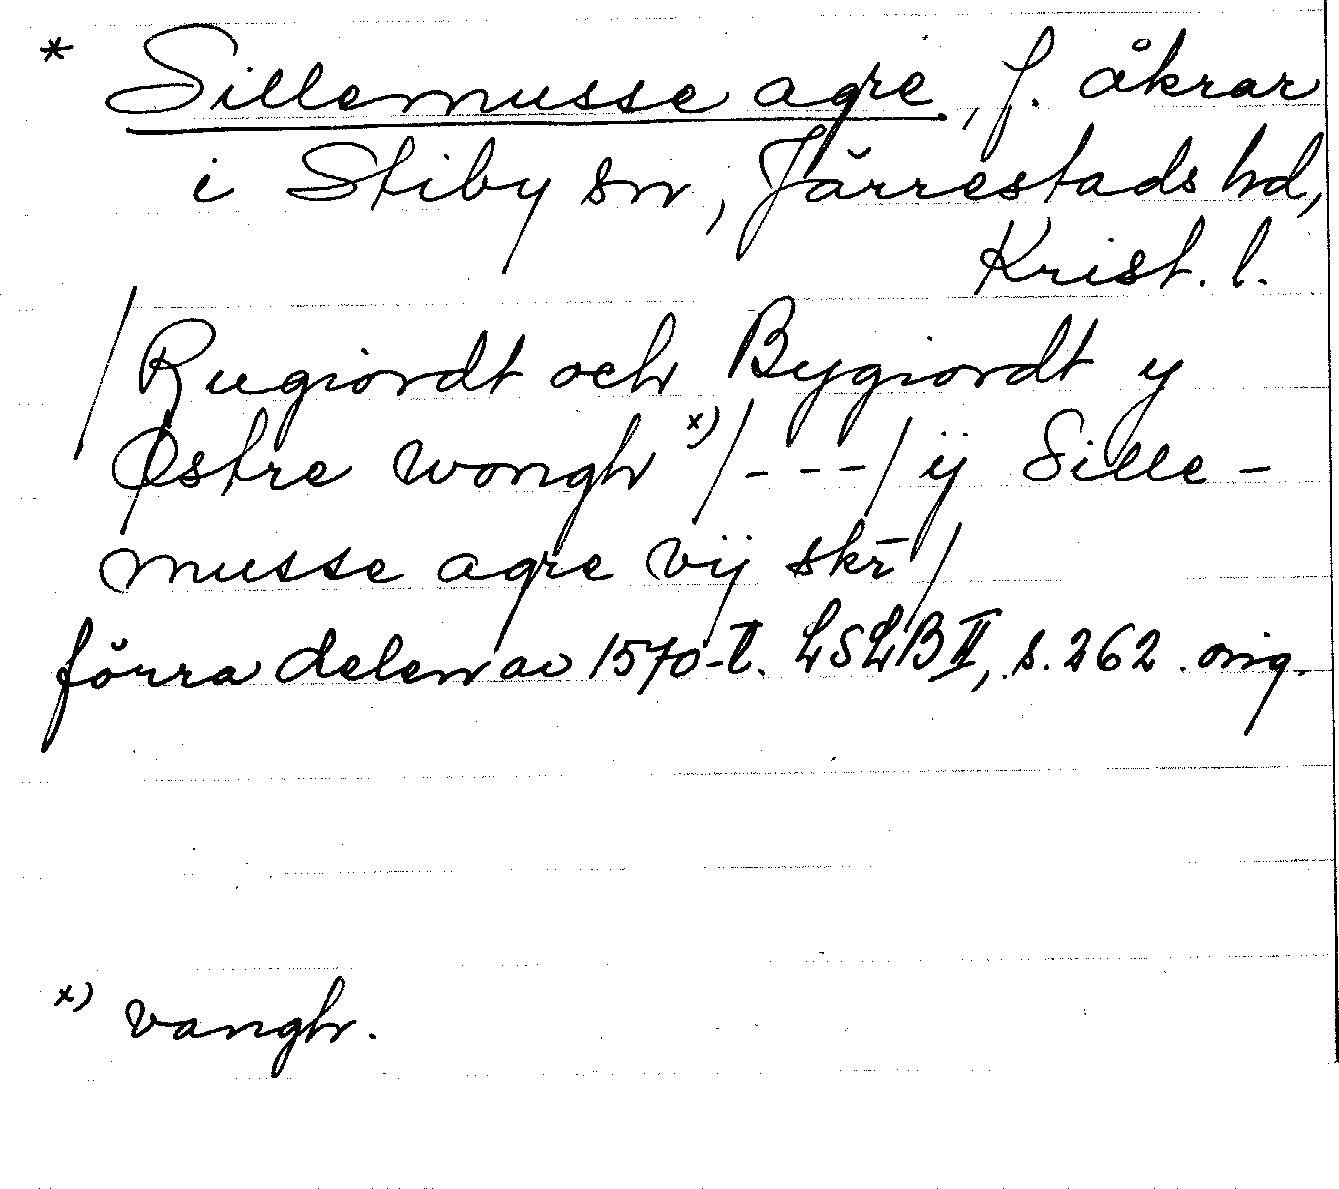 * Sillemusse agre, f. åkrar
i Stiby sn, Järrestads hd,
Krist. l.
/Rugiordt och Bygiordt y
Østre wongh x)/- - -/ ij Sille-
musse agre vij skr̄/
förra delen av 1570-t. LSLB II, s. 262. orig.
x) vangh.